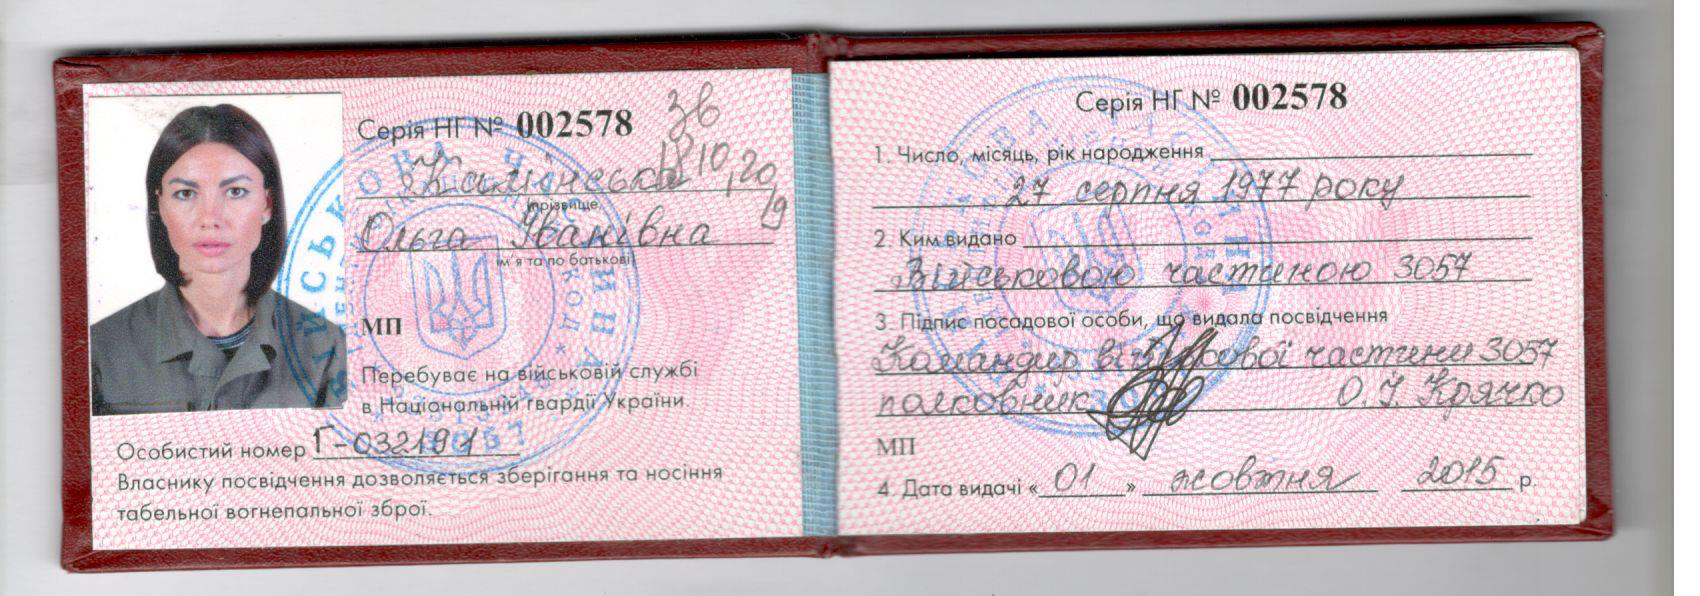 Серія НГ № 002578
Камінська
(прізвище)
Ольга Іванівна
(ім'я та по батькові)
МП
Перебуває на військовій службі
в Національній гвардії України.
Особистий номер Г-032191
Власнику посвідчення дозволяється зберігання та носіння
табельної вогнепальної зброї.
Серія НГ № 002578
1. Число, місяць, рік народження
27 серпня 1977 року
2. Ким видано
Військовою частиною 3057
3. Підпис посадової особи, що видала посвідчення
Командир військової частини 3057
полковник О.І. Крячко
МП
4. Дата видачі «01» жовтня 2015 р.